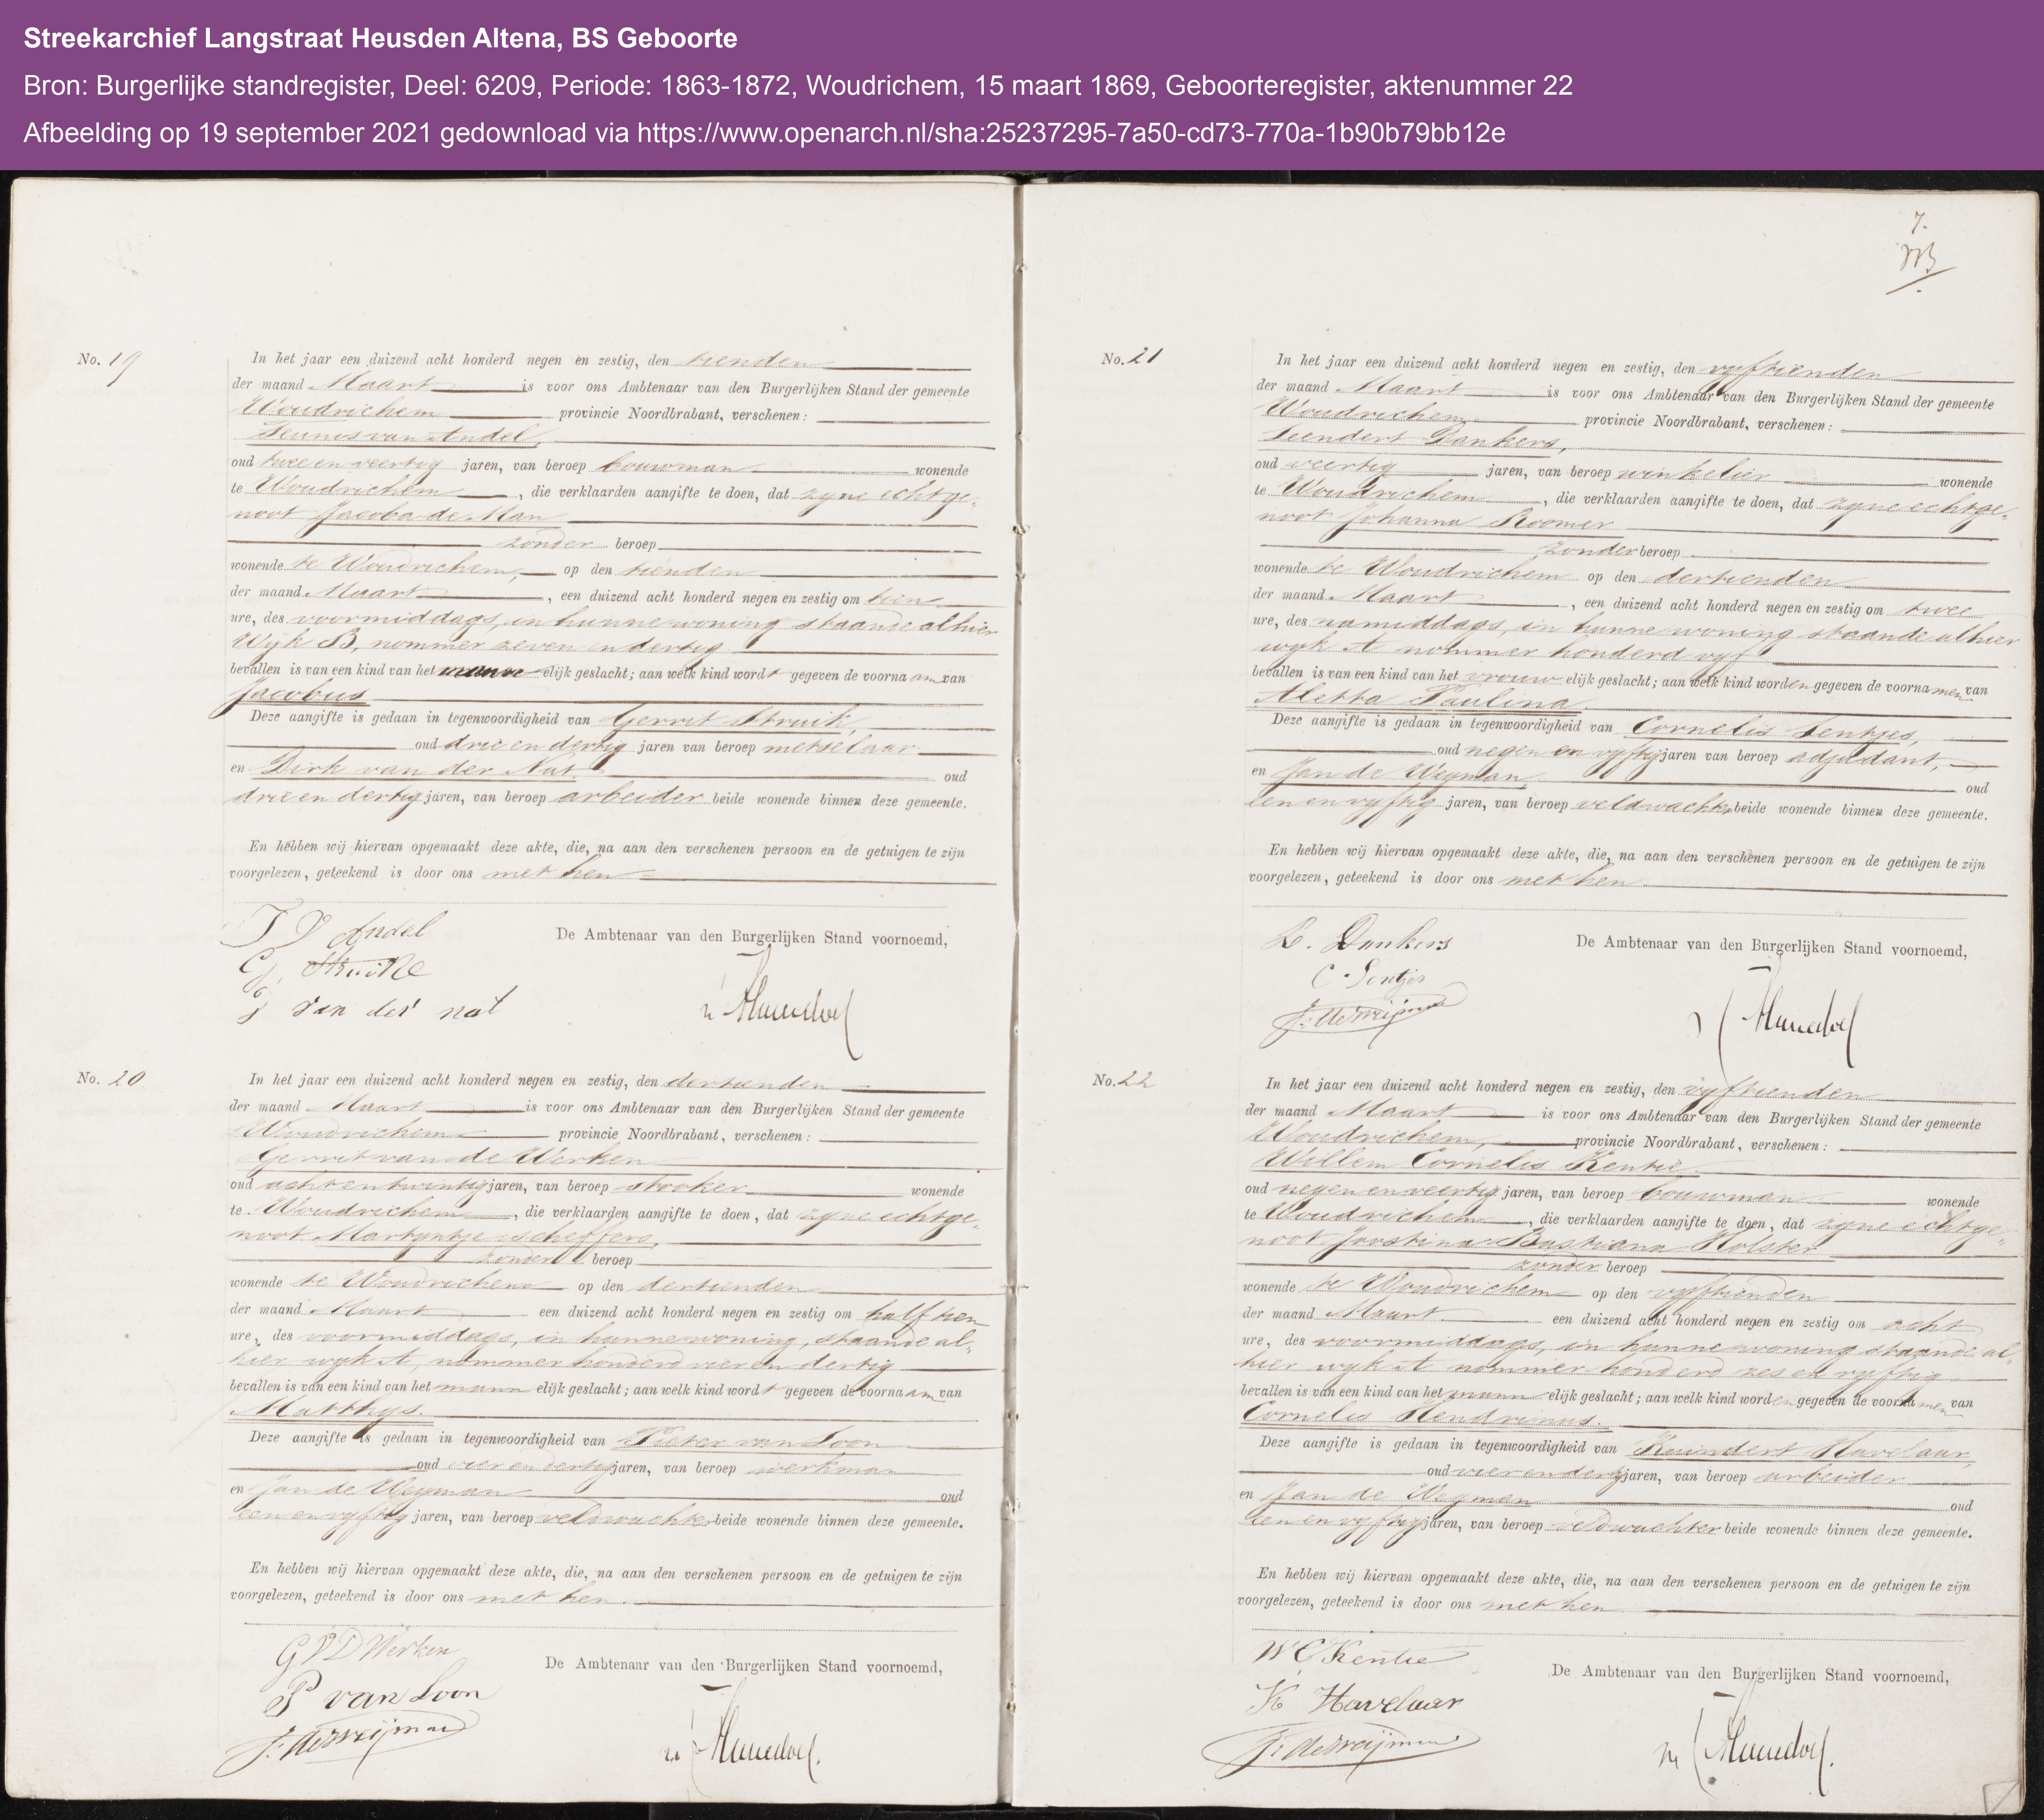 Streekarchief Langstraat Heusden Altena, BS Geboorte
Bron: Burgerlijke standregister, Deel: 6209, Periode: 1863-1872, Woudrichem, 15 maart 1869, Geboorteregister, aktenummer 22
Afbeelding op 19 september 2021 gedownload via https://www.openarch.nl/sha:25237295-7a50-cd73-770a-1b90b79bb12e
No. 19
In het jaar een duizend acht honderd negen en zestig, den tienden
der maand Maart is voor ons Ambtenaar van den Burgerlijken Stand der gemeente
Woudrichem provincie Noordbrabant, verschenen:
Teunis van Andel,
oud twee en veertig jaren, van beroep bouwman wonende
te Woudrichem, die verklaarden aangifte te doen, dat zyne echtge-
noot Jacoba de Man
zonder beroep
wonende te Woudrichem, op den tienden
der maand Maart, een duizend acht honderd negen en zestig om tien
ure, des voormiddags, in hunne woning staande alhier
Wijk B, nommer zeven en dertig
bevallen is van een kind van het mannelijk geslacht; aan welk kind wordt gegeven de voornaam van
Jacobus
Deze aangifte is gedaan in tegenwoordigheid van Gerrit Struik,
oud drie en dertig jaren van beroep metselaar
en Dirk van der Nat oud
drie en dertig jaren, van beroep arbeider beide wonende binnen deze gemeente.
En hebben wij hiervan opgemaakt deze akte, die, na aan den verschenen persoon en de getuigen te zijn
voorgelezen, geteekend is door ons met hen
De Ambtenaar van den Burgerlijken Stand voornoemd,
T V Andel
G. Struik
van der nat
No. 20
In het jaar een duizend acht honderd negen en zestig, den dertienden
der maand Maart is voor ons Ambtenaar van den Burgerlijken Stand der gemeente
Woudrichem provincie Noordbrabant, verschenen:
Gerrit van de Werken
oud acht en twintig jaren, van beroep stooker wonende
te Woudrichem, die verklaarden aangifte te doen, dat zyne echtge-
noot Martyntje Scheffers,
zonder beroep
wonende te Woudrichem op den dertienden
der maand Maart een duizend acht honderd negen en zestig om half tien
ure, des voormiddags, in hunne woning, staande al-
hier wyk A, nommer honderd vier en dertig
bevallen is van een kind van het mannelijk geslacht; aan welk kind wordt gegeven de voornaam van
Matthys.
Deze aangifte is gedaan in tegenwoordigheid van Pieter van Loon
oud vier en veertig jaren, van beroep werkman
en Jan de Weyman oud
een en vyftig jaren, van beroep veldwachter beide wonende binnen deze gemeente.
En hebben wij hiervan opgemaakt deze akte, die, na aan den verschenen persoon en de getuigen te zijn
voorgelezen, geteekend is door ons met hen.
De Ambtenaar van den Burgerlijken Stand voornoemd,
G VD Werken
P van Loon
J: de Weijman
7.
No. 21
In het jaar een duizend acht honderd negen en zestig, den vyftienden
der maand Maart is voor ons Ambtenaar van den Burgerlijken Stand der gemeente
Woudrichem provincie Noordbrabant, verschenen:
Leendert Dankers,
oud veertig jaren, van beroep winkelier wonende
te Woudrichem, die verklaarden aangifte te doen, dat zyne echtge-
noot Johanna Roomer
zonder beroep
wonende te Woudrichem op den dertienden
der maand Maart, een duizend acht honderd negen en zestig om twee
ure, des namiddags, in hunne woning staande alhier
wyk A nommer honderd vyf
bevallen is van een kind van het vrouwelijk geslacht; aan welk kind worden gegeven de voornamen van
Aletta Paulina.
Deze aangifte is gedaan in tegenwoordigheid van Cornelis Sentjes,
oud negen en vyftig jaren van beroep adjudant,
en Jan de Weyman, oud
een en vyftig jaren, van beroep veldwachter beide wonende binnen deze gemeente.
En hebben wij hiervan opgemaakt deze akte, die, na aan den verschenen persoon en de getuigen te zijn
voorgelezen, geteekend is door ons met hen
De Ambtenaar van den Burgerlijken Stand voornoemd,
L. Dankers
C Sentjes
J: de Weijman
No. 22
In het jaar een duizend acht honderd negen en zestig, den vyftienden
der maand Maart is voor ons Ambtenaar van den Burgerlijken Stand der gemeente
Woudrichem, provincie Noordbrabant, verschenen:
Willem Cornelis Kentie
oud negen en veertig jaren, van beroep bouwman wonende
te Woudrichem, die verklaarden aangifte te doen, dat zyne echtge-
noot Joostina Bastiana Holster
zonder beroep
wonende te Woudrichem op den vyftienden
der maand Maart een duizend acht honderd negen en zestig om acht
ure, des voormiddags, in hunne woning staande al-
hier wyk A nommer honderd zes en vyftig
bevallen is van een kind van het mannelijk geslacht; aan welk kind worden gegeven de voornamen van
Cornelis Hendrinus.
Deze aangifte is gedaan in tegenwoordigheid van Havelaar,
oud vier en dertig jaren, van beroep arbeider
en Jan de Weyman oud
een en vyftig jaren, van beroep veldwachter beide wonende binnen deze gemeente.
En hebben wij hiervan opgemaakt deze akte, die, na aan den verschenen persoon en de getuigen te zijn
voorgelezen, geteekend is door ons met hen
De Ambtenaar van den Burgerlijken Stand voornoemd,
W C Kentie
K Havelaar
J: de Weijman